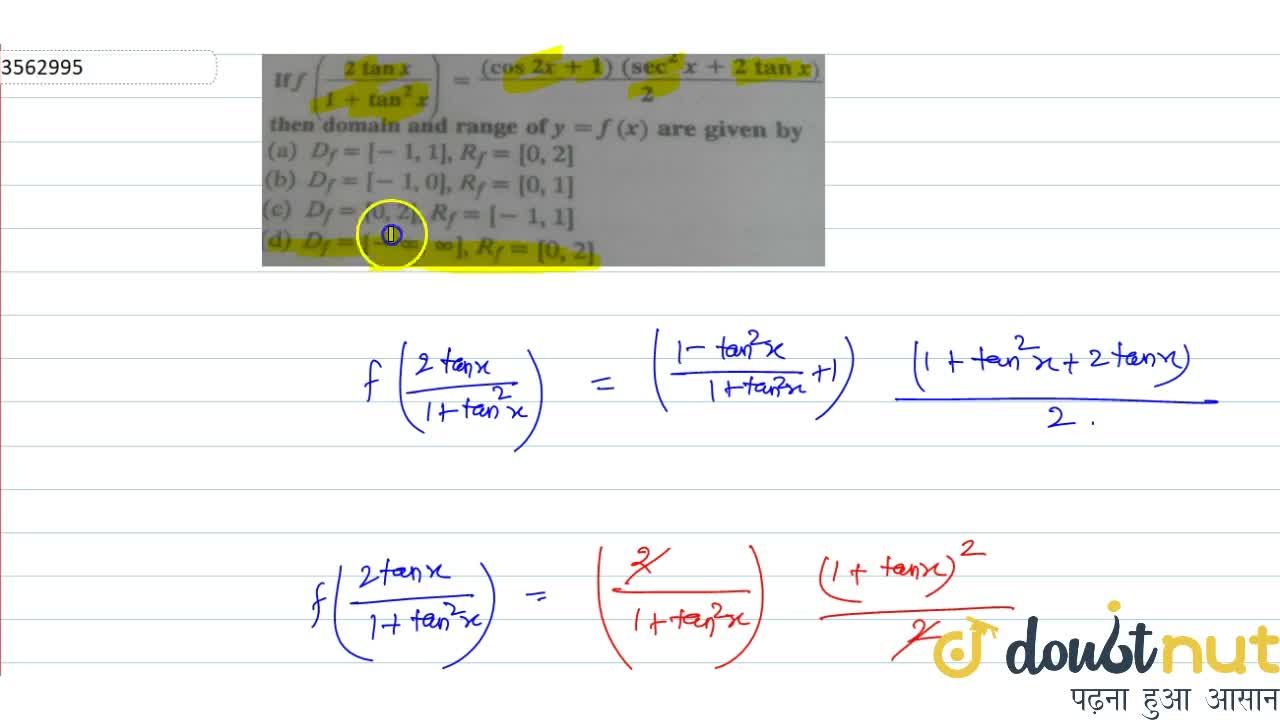 3562995
If f (2 tan x / 1 + tan² x) = (cos 2x + 1) (sec² x + 2 tan x) / 2
then domain and range of y = f (x) are given by
(a) D_f = [− 1, 1], R_f = [0, 2]
(b) D_f = [− 1, 0], R_f = [0, 1]
(c) D_f = [0, 2], R_f = [− 1, 1]
(d) D_f = [− ∞, ∞], R_f = [0, 2]
f (2 tan x / 1 + tan² x) = (1 − tan² x / 1 + tan² x + 1) (1 + tan² x + 2 tan x) / 2 .
f (2 tan x / 1 + tan² x) = (2 / 1 + tan² x) (1 + tan x)² / 2
doubtnut
पढ़ना हुआ आसान